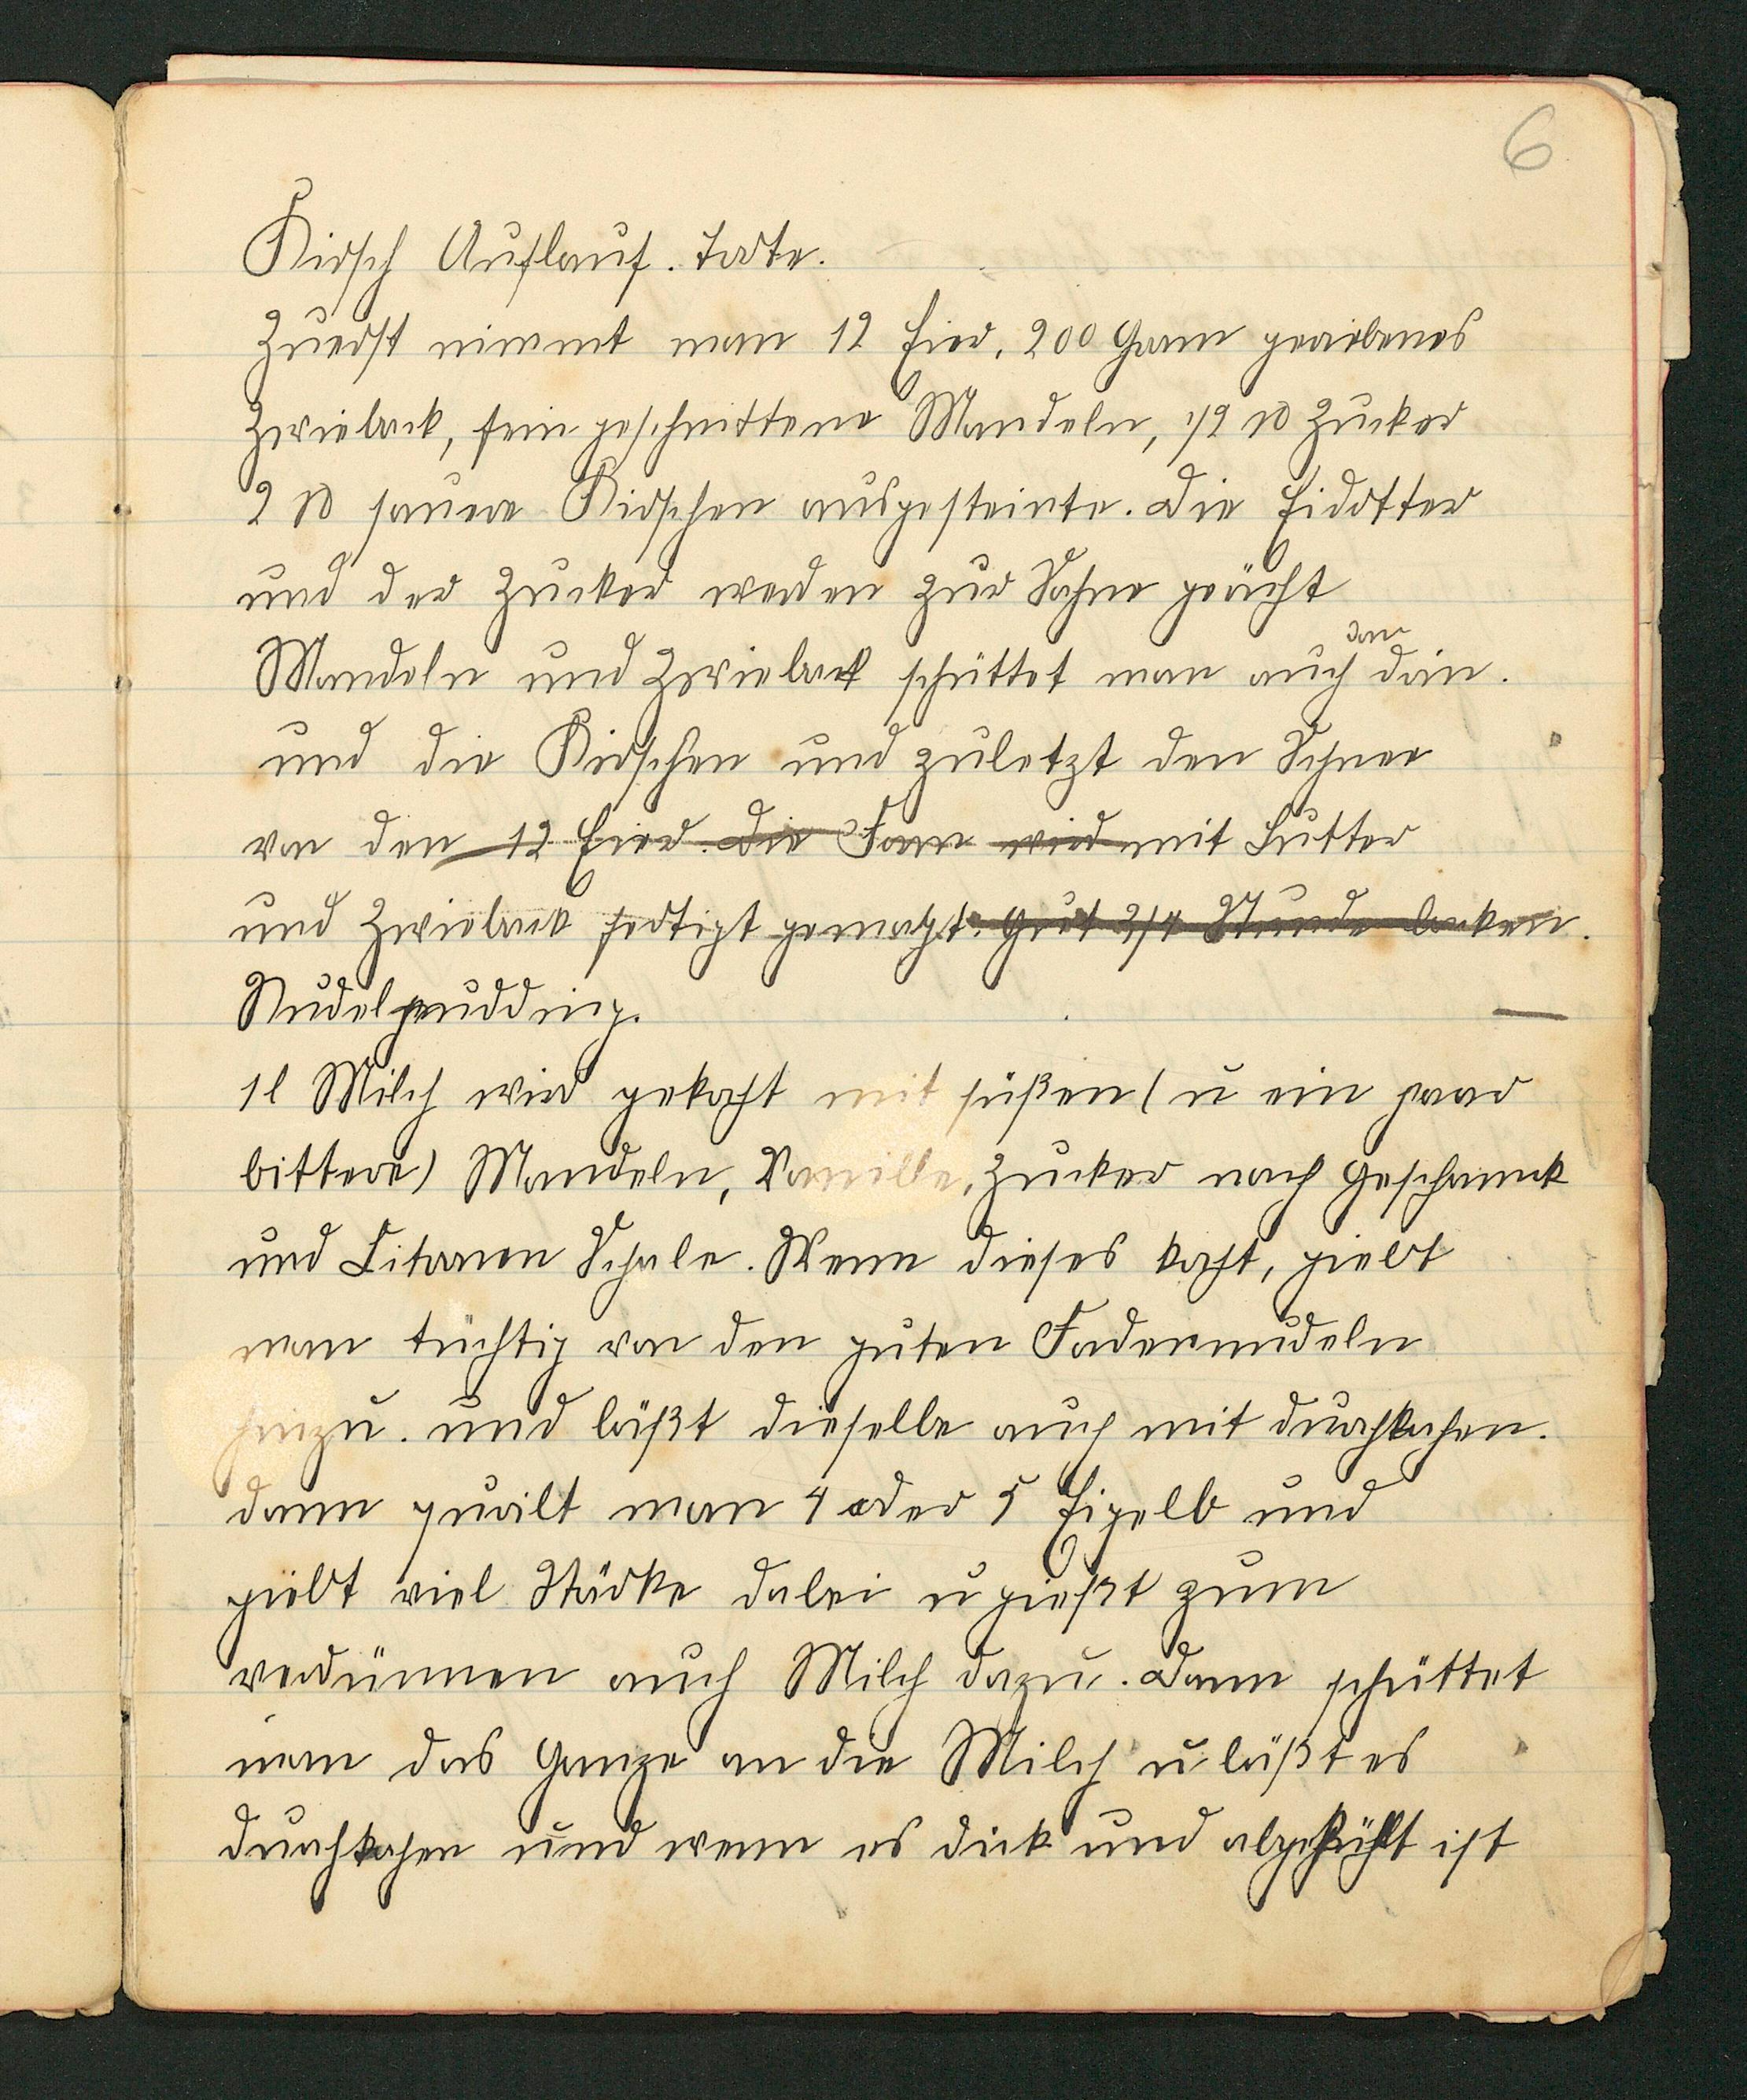 6
Kirsch Auflauf. Torte.
Zuerst nimmt man 12 Eier, 200 Gram geriebenes
Zwieback, fein geschnittene Mandeln, 1/2 ℔ Zucker
2 ℔ sauere Kirschen ausgesteinte. Die Eidotter
und der Zucker werden zur Sahne gerührt
Mandeln und Zwieback schüttet man auch dan drin.
und die Kirschen und zuletzt den Schnee
von den 12 Eier. Die Form wird mit Butter
und Zwieback fertigt gemacht. Gut 3/4 Stunde backen.
Nudelpudding.
1 l Milch wird gekocht mit süßen (u ein paar
bittere) Mandeln, Vanille, Zucker nach Geschmack
und Citronen Schale. Wenn dieses kocht, giebt
man tüchtig von den guten Fadennudeln
hinzu. und läßt dieselbe auch mit durchkochen.
dann quirlt man 4 oder 5 Eigelb und
giebt viel Stärke dabei u gießt zum
verdünnen auch Milch dazu. Dann schüttet
man das Ganze an die Milch u läßt es
durchkochen und wenn es dick und abgekühlt ist